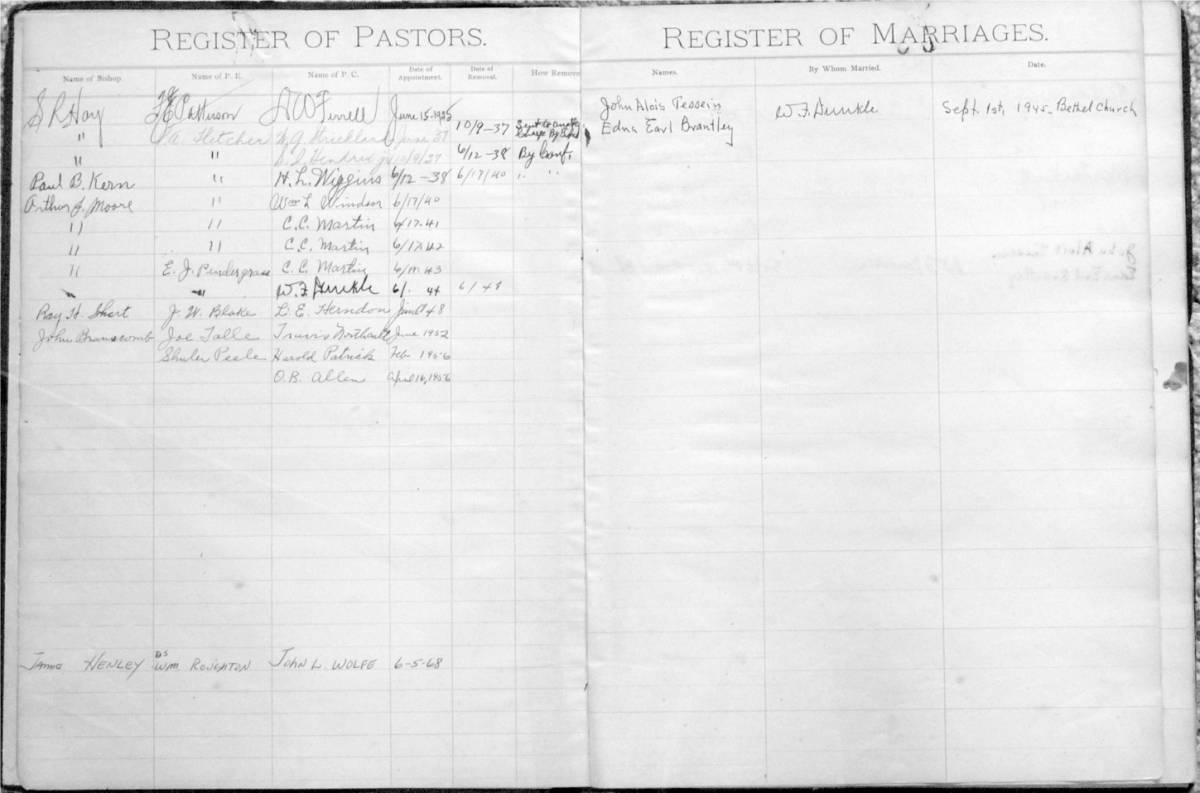 REGISTER OF PASTORS.
Name of Bishop. Name of P. E. Name of P. C. Date of Appointment. Date of Removal. How Remove
S R Hay F E Patterson A W Ferrell June 15-1935
" A. Fletcher W. J. Strickland June 37 10/9-37
" " Hendrix 10/9/37 6/12-38 By Conf.
Paul B. Kern " H. L. Wiggins 6/12-38 6/17/40 " "
Arthur J. Moore " Wm L Windsor 6/17/40
" " C. C. Martin 6/17-41
" " C. C. Martin 6/17-42
" E. J. Pendergrass C. C. Martin 43
" " W. F. Dunkle 6/. 44 6/48
Roy H. Short J. W. Blake L. E. Herndon June 48
John Branscomb Joe Tolle Travis June 1952
Shuler Peele Harold Patrick Feb 1956
O. B. Allen April 16, 1956
James HENLEY DS Wm ROUGHTON JOHN L. WOLFE 6-5-68
REGISTER OF MARRIAGES.
Names. By Whom Married. Date.
John Alois Tessein W F. Dunkle Sept. 1st, 1945- Bethel Church
Edna Earl Brantley